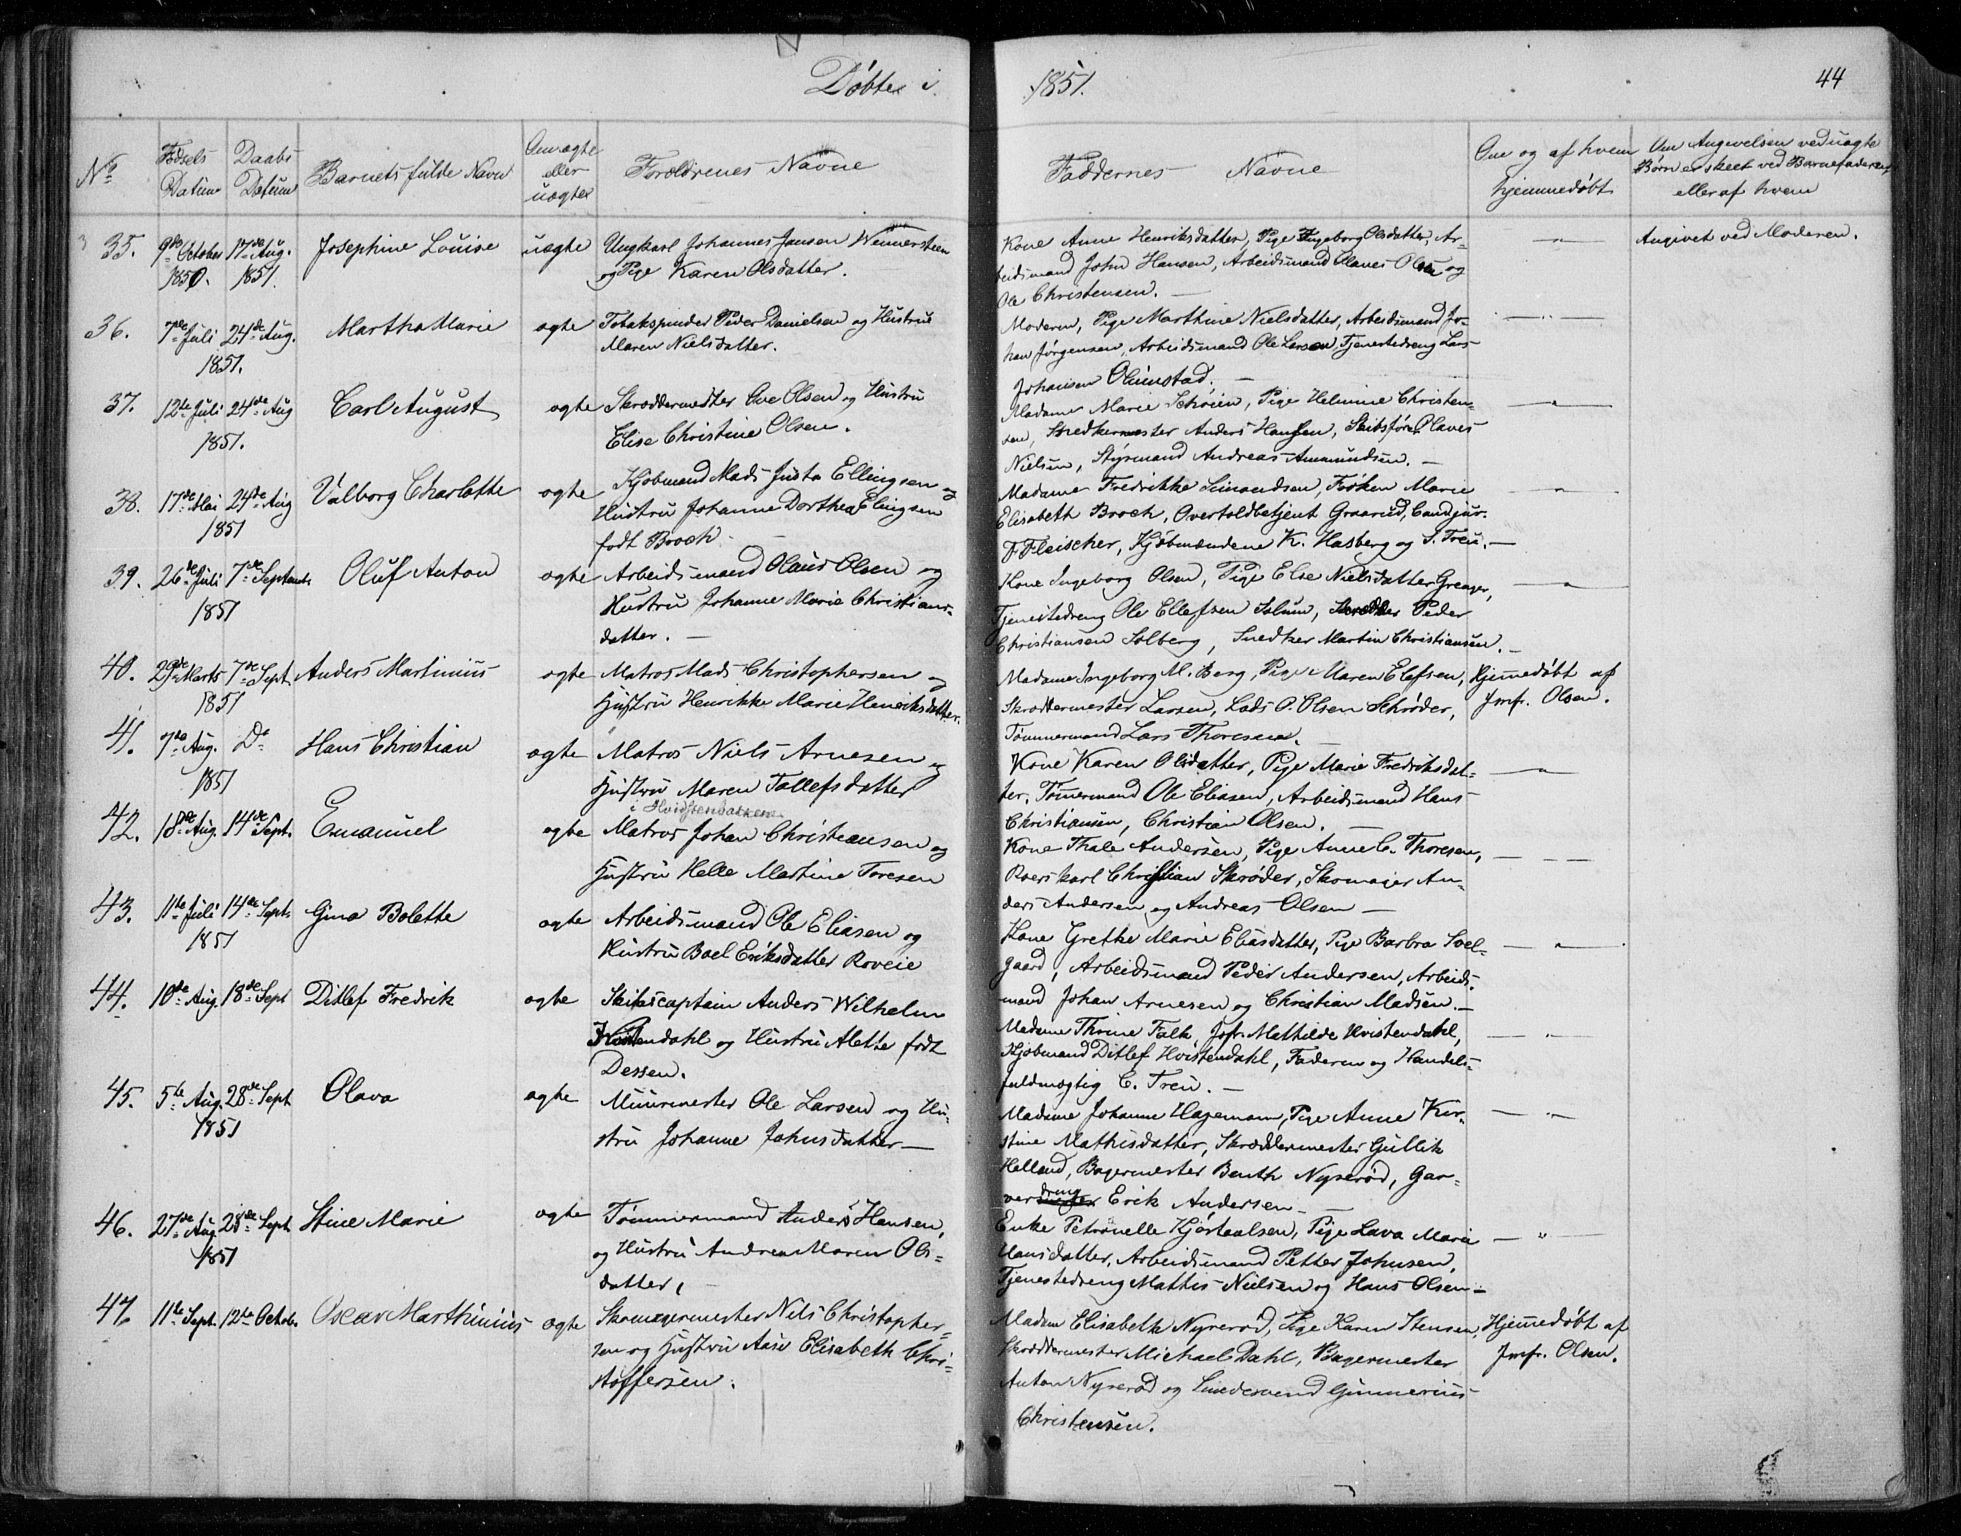 Döbte i
1851.
44
No
Fødsels Datum
Daabs Datum
Barnets fulde Navn
Om ægte eller uægte
Forældrenes Navne
Faddernes Navne
Om og af hvem hjemmedøbt
Om Angivelsen ved uægte Børn er skeet ved Barnefaderen eller af hvem
35. 9de October 1850. 17de Aug. 1851. Josephine Louise uægte
Ungkarl Johannes Jansen
og Pige Karen Olsdatter.
Kone Anne Henriksdatter, Pige Ingeborg Olsdatter, Ar-
beidsmand John Hansen, Arbeidsmand Olaves Olsen og
Ole Christensen. —
— " —
Angivet ved Moderen.
36. 7de Juli 1851. 24de Aug. Martha Marie ægte
Tobakspinder Peder Danielsen og Hustrue
Maren Nielsdatter.
Moderen, Pige Marthine Nielsdatter, Arbeidsmand Jo-
han Jørgensen, Arbeidsmand Ole Larsen, Tjenestedreng Lars
Johansen Olimstad. —
— " —
37. 12te Juli 1851. 24de Aug Carl August ægte
Skræddermester Ove Olsen og Hustru
Elise Christine Olsen.
Madame Marie Schøien, Pige Helmine Christen-
sen, Snedkermester Anders Hansen, Skibsfører Olaves
Nielsen, Styrmand Andreas Ammundsen. —
— " —
38. 17de Mai 1851 24de Aug Valborg Charlotte ægte
Kjøbmand Mads Justa Ellingsen og
Hustru Johanne Dorthea Elingsen
født Broch. —
Madame Fredrikke Simondsen, Frøken Marie
Elisabeth Broch, Overtoldbetjent Graarud, Cand jur.
F. Fleischer, Kjøbmændene K. Hasberg og S. Treu. —
— " —
39. 26de Juli 1851 7de Septemb. Oluf Anton ægte
Arbeidsmand Olaus Olsen og
Hustru Johanne Marie Christians-
datter. —
Kone Ingeborg Olsen, Pige Else Nielsdatter Greager,
Tjenestedreng Ole Ellefsen Islum, Skrædder Peder
Christiansen Solberg, Snedker Martin Christiansen. —
— " —
40. 29de Marts 1851 7de Sept. Anders Martinius ægte
Matros Mads Christophersen og
Hustru Henrikke Marie Henriksdatter.
Madame Ingeborg M. Berg, Pige Maren Elefsen,
Skræddermester Larsen, Lods P. Olsen Schrøder,
Tømmermand Lars Thoresen. —
Hjemmedøbt af
Jmfr. Olsen.
41. 7de Aug. 1851 Do Hans Christian ægte
Matros Niels Arnesen og
Hustru Maren Tollefsdatter
Kone Karen Olsdatter, Pige Marie Fredriksdat-
ter, Tømermand Ole Eliasen, Arbeidsmand Hans
Christiansen, Christian Olsen. —
— " —
42. 18de Aug. 14de Sept. Emanuel ægte
i Hvidstenbakken
Matros Johan Christiansen og
Hustru Helle Martine Toresen
Kone Thale Andersen, Pige Anne C. Thoresen,
Roerskarl Christian Skrøder, Skomager An-
ders Andersen og Andreas Olsen —
— " —
43. 11te Juli 1851 14de Sept. Gina Bolette ægte
Arbeidsmand Ole Eliasen og
Hustru Boel Eriksdatter Roveie
Kone Grethe Marie Eliasdatter, Pige Barbra Soel-
gaard, Arbeidsmand Peder Andersen, Arbeids-
mand Johan Arnesen og Christian Madsen. —
— " —
44. 10de Aug. 18de Sept Ditlef Fredrik ægte
Skibscaptain Anders Wilhelm
Hvistendahl og Hustru Alette født
Dessen.
Madame Thrine Falk, Jofr. Mathilde Hvistendahl,
Kjøbmand Ditlef Hvistendahl, Faderen og Handels-
fuldmægtig C. Treu. —
— " —
45. 5te Aug. 1851 28de Sept Olava ægte
Muurmester Ole Larsen og Hu-
stru Johanne Johnsdatter —
Madame Johanne Hagemann, Pige Anne Kir-
stine Mathisdatter, Skræddermester Gullik
Helland, Bagermester Benth Nyserød, Gar-
verdreng Erik Andersen —
— " —
46. 27de Aug. 1851 28de Sept Stine Marie ægte
Tømmermand Anders Hansen,
og Hustru Andrea Maren Ols-
datter, —
Enke Petronelle Kjørtaelsen, Pige Lava Marie
Hansdatter, Arbeidsmand Petter Johnsen,
Tjenestedreng Mathis Nielsen og Hans Olsen —
— " —
47. 11te Sept. 12te Octob. Oscar Marthinius ægte
Skomagermester Niels Christopher-
sen og Hustru Aase Elisabeth Chri-
stoffersen.
Madam Elisabeth Nyrerød, Pige Karen Stensen,
Skræddermester Michael Dahl, Bagermester
Anton Nyserød og Smedesvend Gunnerius
Christensen.
Hjemmedøbt af
Jmfr. Olsen.